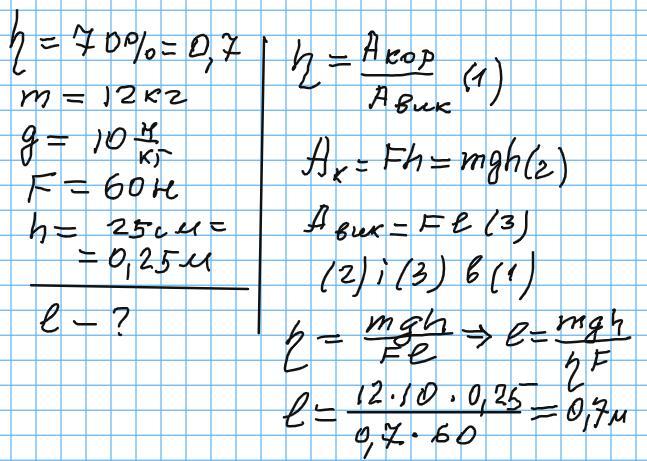 η = 70% = 0,7
m = 12кг
g = 10 н/кг
F = 60н
h = 25см =
= 0,25м
l - ?
η = Aкор/Aвик (1)
Aк = Fh = mgh(2)
Aвик = Fl (3)
(2) і (3) в (1)
η = mgh/Fl ⇒ l = mgh/ηF
l = 12·10·0,25/0,7·60 = 0,7м